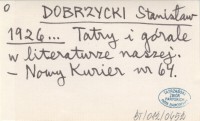 0
DOBRZYCKI Stanisław
1926... Tatry i górale
w literaturze naszej.
– Nowy Kurier nr 64.